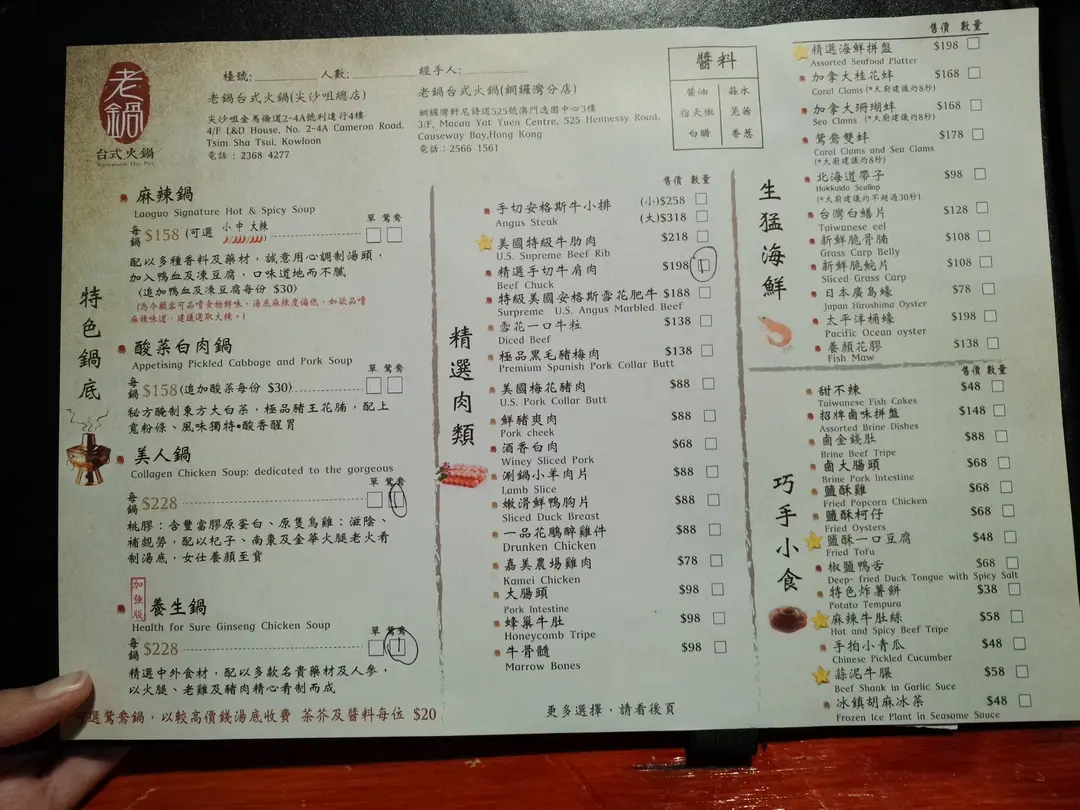 老鍋
台式火鍋
Taiwanese Hot Pot
檯號:________ 人數:________ 經手人:________
老鍋台式火鍋(尖沙咀總店)
尖沙咀金馬倫道2-4A號利達行4樓
4/F L&D House, No. 2-4A Cameron Road,
Tsim Sha Tsui, Kowloon
電話：2368 4277
老鍋台式火鍋(銅鑼灣分店)
銅鑼灣軒尼詩道525號澳門逸園中心3樓
3/F, Macau Yat Yuen Centre, 525 Hennessy Road,
Causeway Bay,Hong Kong
電話：2566 1561
醬料
醬油 蒜水
指天椒 芫茜
白醋 香蔥
特色鍋底
麻辣鍋
Laoguo Signature Hot & Spicy Soup
單 鴛鴦
每鍋 $158 (可選 小 中 大辣
配以多種香料及藥材，誠意用心調制湯頭，
加入鴨血及凍豆腐，口味道地而不膩
(追加鴨血及凍豆腐每份 $30)
(為令顧客可品嚐食物鮮味，湯底麻辣度偏低，如欲品嚐
麻辣味道，建議選取大辣。)
酸菜白肉鍋
Appetising Pickled Cabbage and Pork Soup
單 鴛鴦
每鍋 $158(追加酸菜每份 $30)
秘方醃制東方大白菜，極品豬王花腩，配上
寬粉條、風味獨特•酸香醒胃
美人鍋
Collagen Chicken Soup: dedicated to the gorgeous
單 鴛鴦
每鍋 $228
桃膠：含豐富膠原蛋白、原隻烏雞：滋陰、
補虧勞，配以杞子、南棗及金華火腿老火肴
制湯底，女仕養顏至寶
加強版
養生鍋
Health for Sure Ginseng Chicken Soup
單 鴛鴦
每鍋 $228
精選中外食材，配以多款名貴藥材及人參，
以火腿、老雞及豬肉精心肴制而成
選鴛鴦鍋，以較高價錢湯底收費 茶芥及醬料每位 $20
精選肉類
售價 數量
手切安格斯牛小排 (小)$258
Angus Steak (大)$318
美國特級牛肋肉 $218
U.S. Supreme Beef Rib
精選手切牛肩肉 $198
Beef Chuck
特級美國安格斯雪花肥牛 $188
Surpreme U.S. Angus Marbled Beef
雪花一口牛粒 $138
Diced Beef
極品黑毛豬梅肉 $138
Premium Spanish Pork Collar Butt
美國梅花豬肉 $88
U.S. Pork Collar Butt
鮮豬爽肉 $88
Pork cheek
酒香白肉 $68
Winey Sliced Pork
涮鍋小羊肉片 $88
Lamb Slice
嫩滑鮮鴨胸片 $88
Sliced Duck Breast
一品花鵰醉雞件 $88
Drunken Chicken
嘉美農場雞肉 $78
Kamei Chicken
大腸頭 $98
Pork Intestine
蜂巢牛肚 $98
Honeycomb Tripe
牛骨髓 $98
Marrow Bones
更多選擇，請看後頁
生猛海鮮
售價 數量
精選海鮮拼盤 $198
Assorted Seafood Platter
加拿大桂花蚌 $168
Coral Clams (*大廚建議約8秒)
加拿大珊瑚蚌 $168
Sea Clams (*大廚建議約8秒)
鴛鴦雙蚌 $178
Coral Clams and Sea Clams
(*大廚建議約8秒)
北海道帶子 $98
Hokkaido Scallop
(*大廚建議約不超過30秒)
台灣白鱔片 $128
Taiwanese eel
新鮮脆骨腩 $108
Grass Carp Belly
新鮮脆鯇片 $108
Sliced Grass Carp
日本廣島蠔 $78
Japan Hiroshima Oyster
太平洋桶蠔 $198
Pacific Ocean oyster
養顏花膠 $138
Fish Maw
巧手小食
售價 數量
甜不辣 $48
Taiwanese Fish Cakes
招牌鹵味拼盤 $148
Assorted Brine Dishes
鹵金錢肚 $88
Brine Beef Tripe
鹵大腸頭 $68
Brine Pork Intestine
鹽酥雞 $68
Fried Popcorn Chicken
鹽酥柯仔 $68
Fried Oysters
鹽酥一口豆腐 $48
Fried Tofu
椒鹽鴨舌 $68
Deep- fried Duck Tongue with Spicy Salt
特色炸薯餅 $38
Potato Tempura
麻辣牛肚絲 $58
Hot and Spicy Beef Tripe
手拍小青瓜 $48
Chinese Pickled Cucumber
蒜泥牛𦟌 $58
Beef Shank in Garlic Suce
冰鎮胡麻冰菜 $48
Frozen Ice Plant in Seasame Sauce